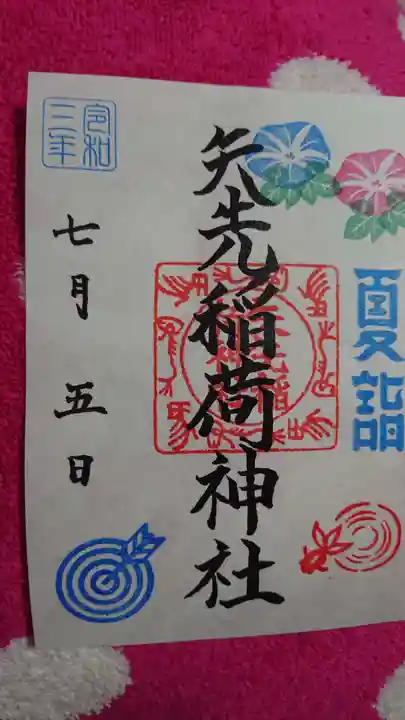 夏詣
矢先稲荷神社
令和
三年
七月五日